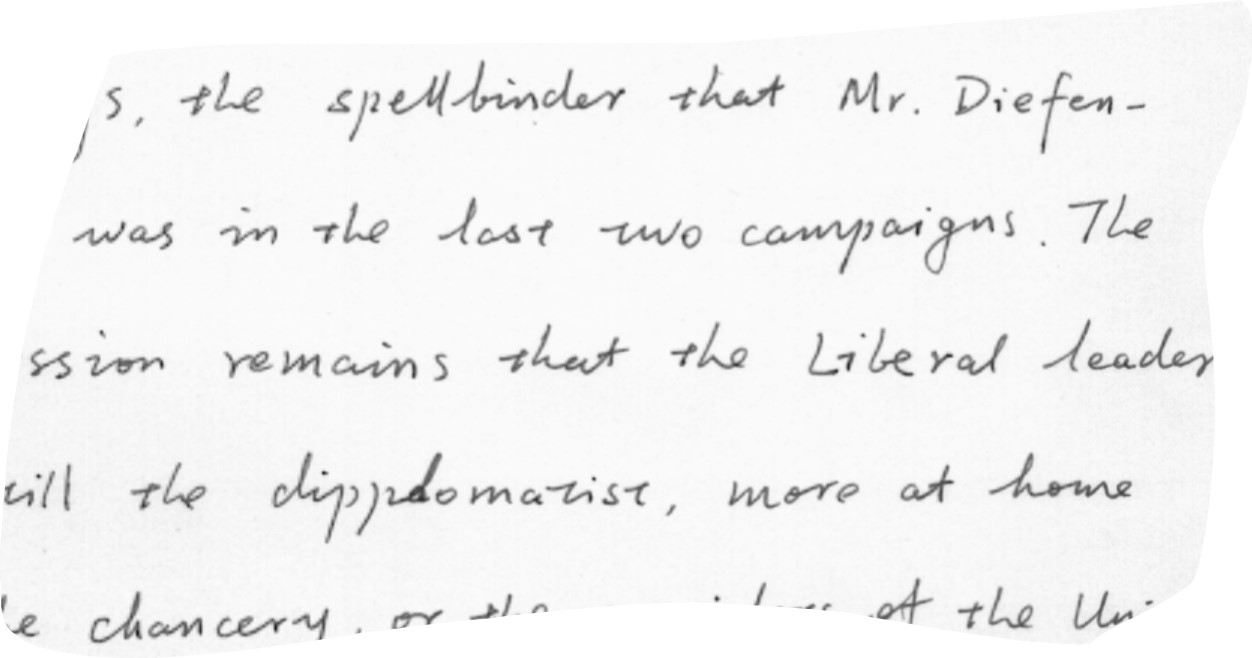 s, the spellbinder that Mr. Diefen-
was in the last two campaigns. The
ssion remains that the Liberal leader
till the dippdomatist, more at home
chancery, or the of the